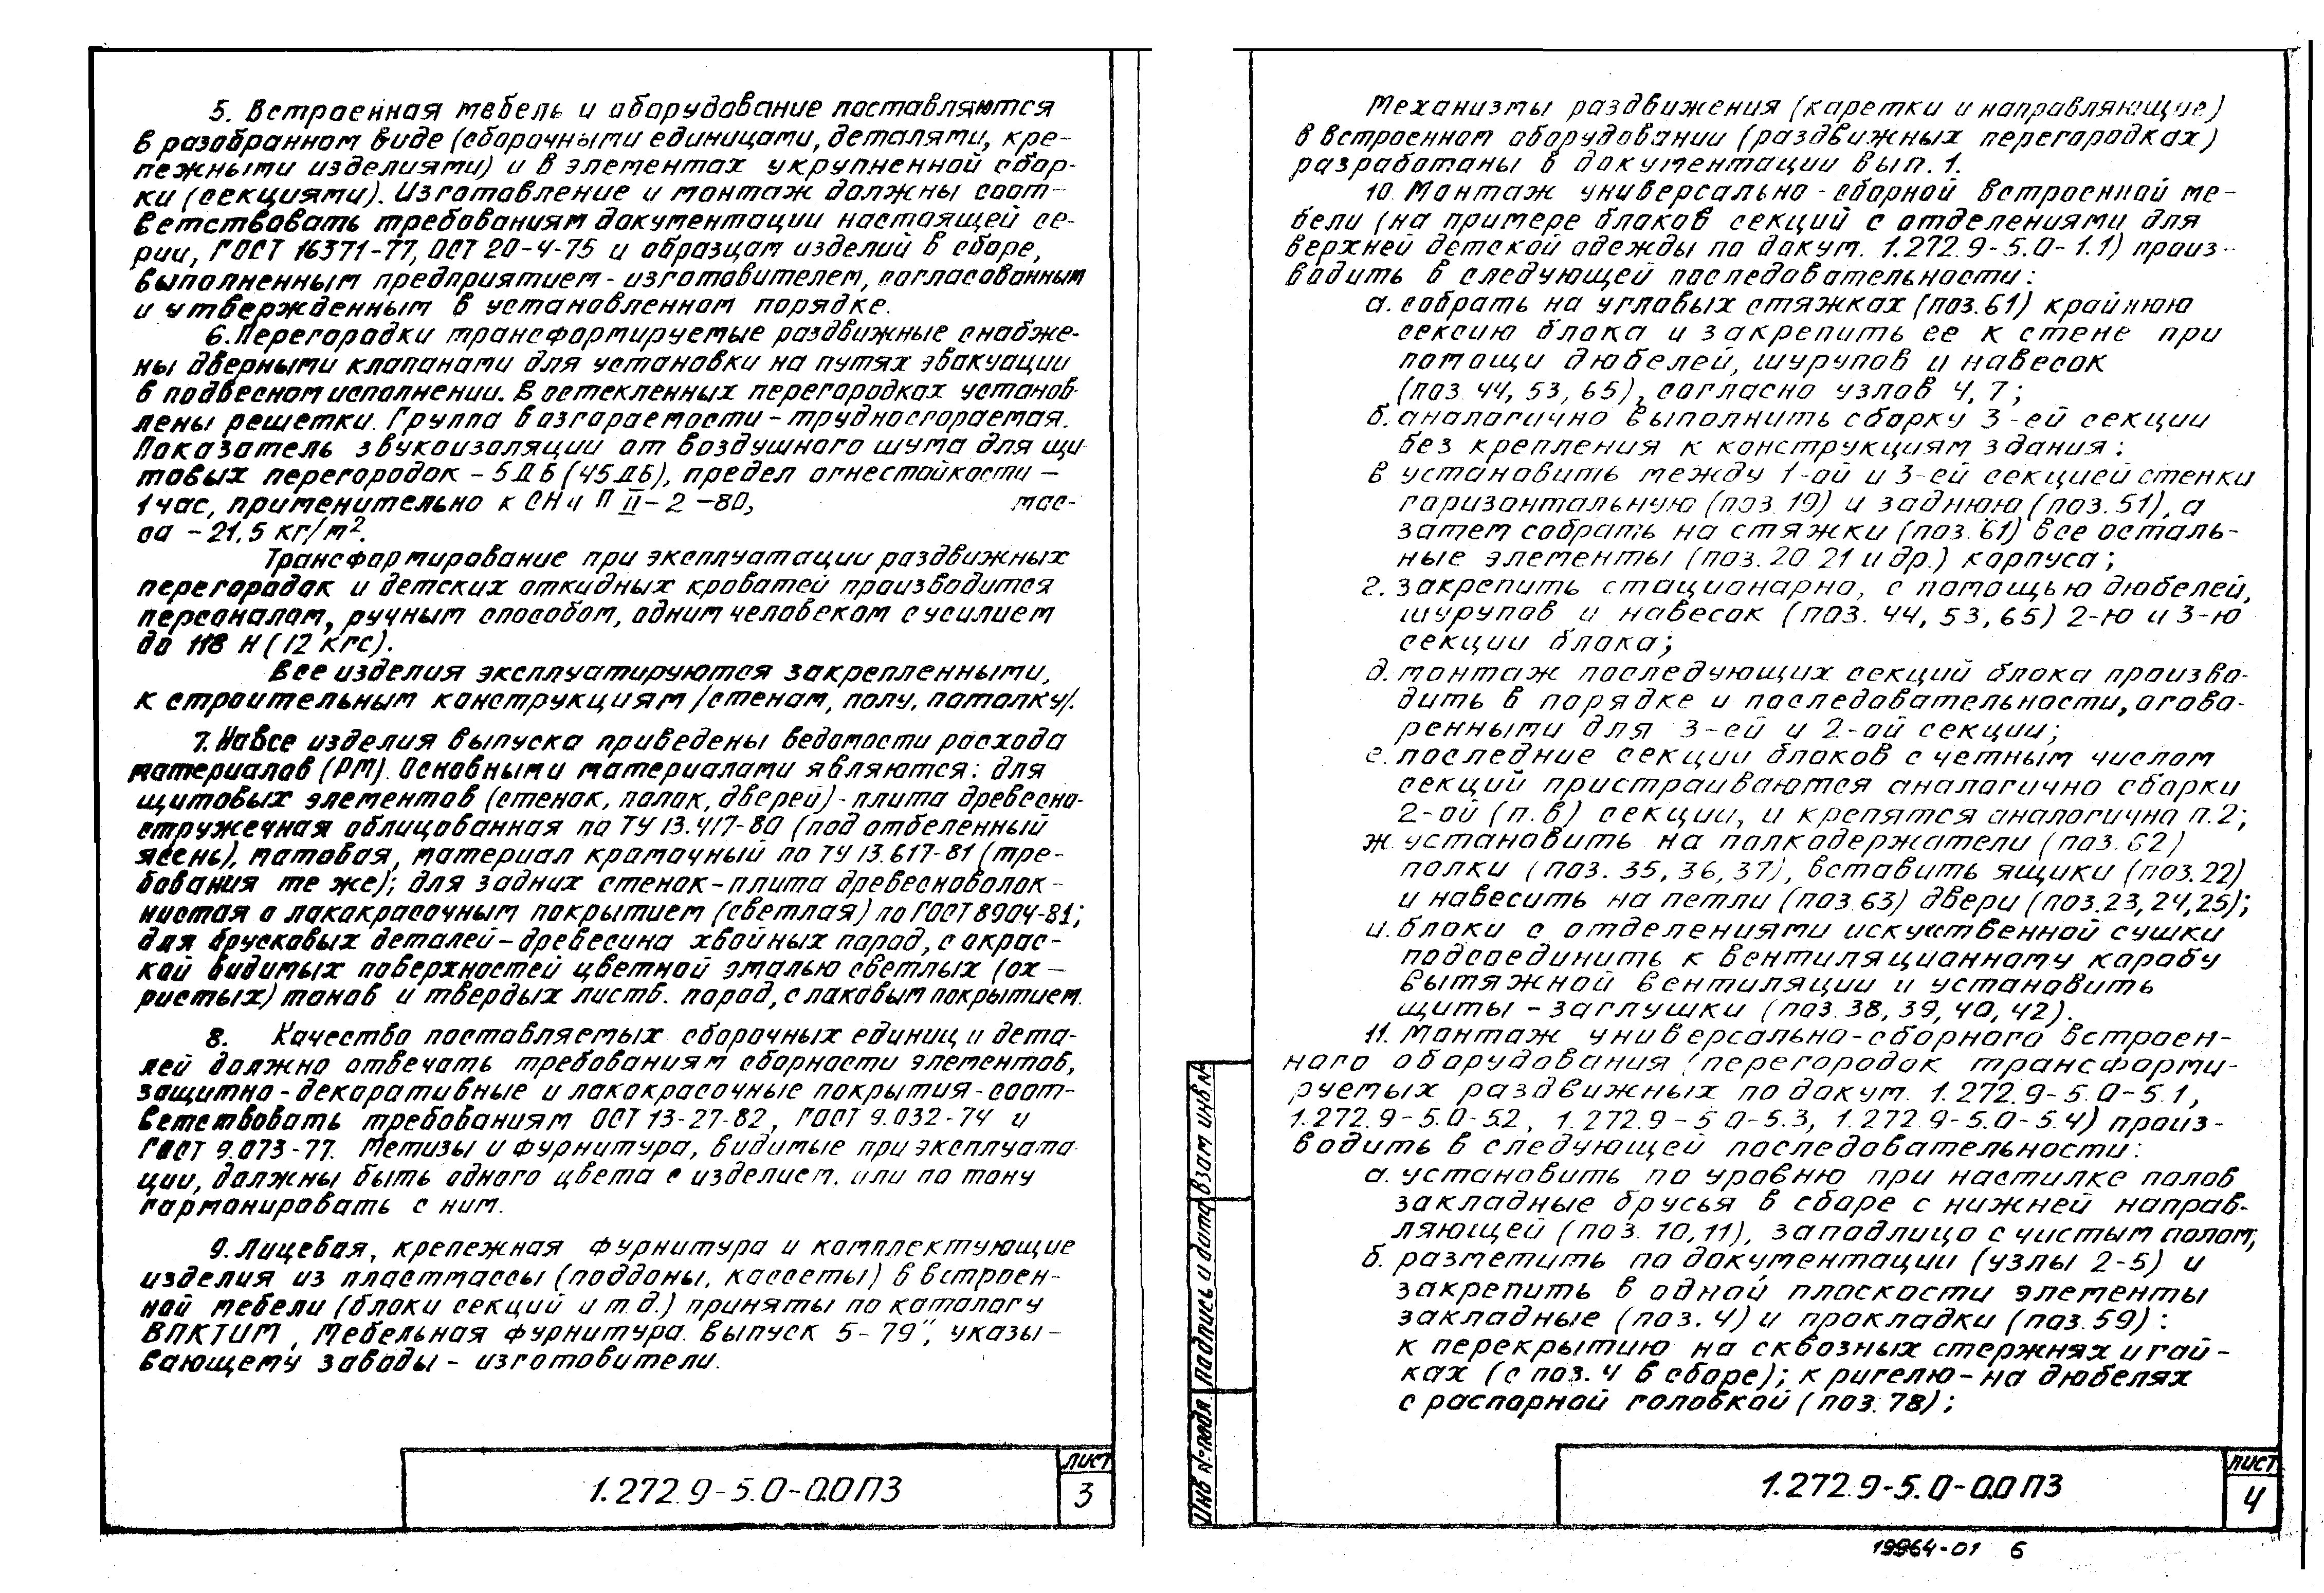 5. Встроенная мебель и оборудование поставляются
в разобранном виде (сборочными единицами, деталями, кре-
пежными изделиями) и в элементах укрупненной сбор-
ки (секциями). Изготовление и монтаж должны соот-
ветствовать требованиям документации настоящей се-
рии, ГОСТ 16371-77, ОСТ 20-4-75 и образцам изделий в сборе,
выполненным предприятием-изготовителем, согласованным
и утвержденным в установленном порядке.
6. Перегородки трансформируемые раздвижные снабже-
ны дверными клапанами для установки на путях эвакуации
в подвесном исполнении. В остекленных перегородках установ
лены решетки. Группа возгораемости - трудносгораемая.
Показатель звукоизоляции от воздушного шума для щи
товых перегородок - 5ДБ (45ДБ), предел огнестойкости —
1 час, применительно к СН и П II-2-80, мас-
са - 21,5 кг/м².
Трансформирование при эксплуатации раздвижных
перегородок и детских откидных кроватей производится
персоналом, ручным способом, одним человеком с усилием
до 118 Н (12 кгс).
Все изделия эксплуатируются закрепленными,
к строительным конструкциям /стенам, полу, потолку/.
7. На все изделия выпуска приведены ведомости расхода
материалов (РМ). Основными материалами являются: для
щитовых элементов (стенок, полок, дверей) - плита древесно-
стружечная облицованная по ТУ 13.417-80 (под отбеленный
ясень), матовая, материал кромочный по ТУ 13.617-81 (тре-
бования те же); для задних стенок - плита древесноволок-
нистая с лакокрасочным покрытием (светлая) по ГОСТ 8904-81;
для брусковых деталей - древесина хвойных пород, с окрас-
кой видимых поверхностей цветной эмалью светлых (ох-
ристых) тонов и твердых листв. пород, с лаковым покрытием.
8. Качество поставляемых сборочных единиц и дета-
лей должно отвечать требованиям сборности элементов,
защитно-декоративные и лакокрасочные покрытия - соот-
ветствовать требованиям ОСТ 13-27-82, ГОСТ 9.032-74 и
ГОСТ 9.073-77. Метизы и фурнитура, видимые при эксплуата
ции, должны быть одного цвета с изделием, или по тону
гармонировать с ним.
9. Лицевая, крепежная фурнитура и комплектующие
изделия из пластмассы (поддоны, кассеты) в встроен-
ной мебели (блоки секций и т.д.) приняты по каталогу
ВПКТИМ „Мебельная фурнитура. Выпуск 5-79", указы-
вающему заводы - изготовители.
1.272.9-5.0-0.0 ПЗ
лист
3
Механизмы раздвижения (каретки и направляющие)
в встроенном оборудовании (раздвижных перегородках)
разработаны в документации вып. 1.
10. Монтаж универсально-сборной встроенной ме-
бели (на примере блоков секций с отделениями для
верхней детской одежды по докум. 1.272.9-5.0-1.1) произ-
водить в следующей последовательности:
а. собрать на угловых стяжках (поз.61) крайнюю
сексию блока и закрепить ее к стене при
помощи дюбелей, шурупов и навесок
(поз. 44, 53, 65), согласно узлов 4, 7;
б. аналогично выполнить сборку 3-ей секции
без крепления к конструкциям здания:
в. установить между 1-ой и 3-ей секцией стенки
горизонтальную (поз. 19) и заднюю (поз. 51), а
затем собрать на стяжки (поз. 61) все осталь-
ные элементы (поз. 20 21 и др.) корпуса;
г. закрепить стационарно, с помощью дюбелей,
шурупов и навесок (поз. 44, 53, 65) 2-ю и 3-ю
секции блока;
д. монтаж последующих секций блока произво-
дить в порядке и последовательности, огово-
ренными для 3-ей и 2-ой секции;
е. последние секции блоков с четным числом
секций пристраиваются аналогично сборки
2-ой (п. в) секции, и крепятся аналогично п.г;
ж. установить на полкодержатели (поз. 62)
полки (поз. 35, 36, 37), вставить ящики (поз. 22)
и навесить на петли (поз. 63) двери (поз. 23, 24, 25);
и. блоки с отделениями искусственной сушки
подсоединить к вентиляционному коробу
вытяжной вентиляции и установить
щиты - заглушки (поз. 38, 39, 40, 42).
11. Монтаж универсально-сборного встроен-
ного оборудования (перегородок трансформи-
руемых раздвижных по докум. 1.272.9-5.0-5.1,
1.272.9-5.0-5.2, 1.272.9-5 0-5.3, 1.272.9-5.0-5.4) произ-
водить в следующей последовательности:
а. установить по уровню при настилке полов
закладные брусья в сборе с нижней направ-
ляющей (поз. 10, 11), заподлицо с чистым полом;
б. разметить по документации (узлы 2-5) и
закрепить в одной плоскости элементы
закладные (поз. 4) и прокладки (поз. 59):
к перекрытию на сквозных стержнях и гай-
ках (с поз. 4 в сборе); к ригелю - на дюбелях
с распорной головкой (поз. 78);
Инв № подл Подпись и дата Взам инв №
1.272.9-5.0-0.0 ПЗ
лист
4
19964-01 6